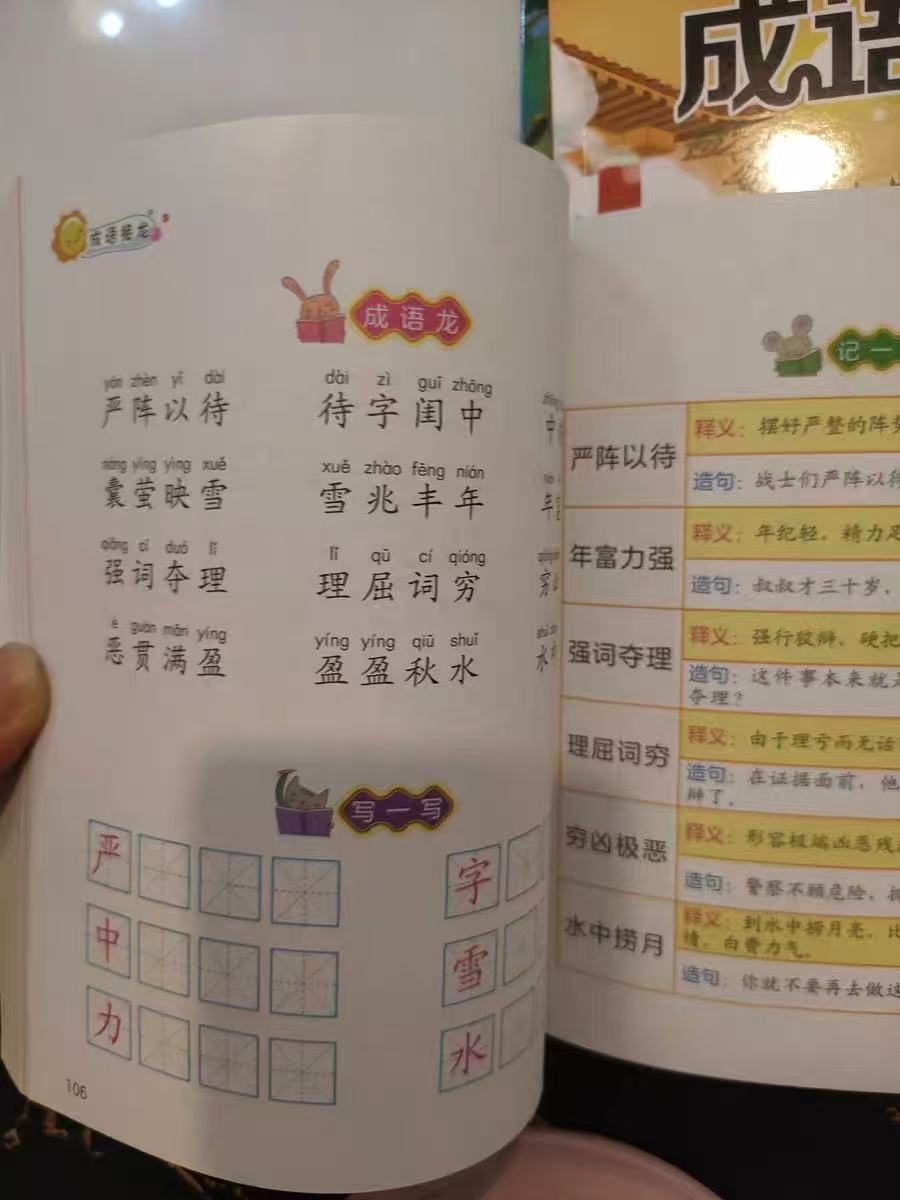 成语
成语接龙
成语龙
yán zhèn yǐ dài
严阵以待
dài zì guī zhōng
待字闺中
中
náng yíng yìng xuě
囊萤映雪
xuě zhào fēng nián
雪兆丰年
年富
qiǎng cí duó lǐ
强词夺理
lǐ qū cí qióng
理屈词穷
穷
è guàn mǎn yíng
恶贯满盈
yíng yíng qiū shuǐ
盈盈秋水
水
写一写
严
字
中
雪
力
水
106
记一
严阵以待
释义：摆好严整的阵势
造句：战士们严阵以待
年富力强
释义：年纪轻，精力足
造句：叔叔才三十岁，
强词夺理
释义：强行狡辩，硬把
造句：这件事本来就是
夺理？
理屈词穷
释义：由于理亏而无话
造句：在证据面前，他
辩了。
穷凶极恶
释义：形容极端凶恶残
造句：警察不顾危险，
水中捞月
释义：到水中捞月亮，比
情，白费力气。
造句：你就不要再去做这